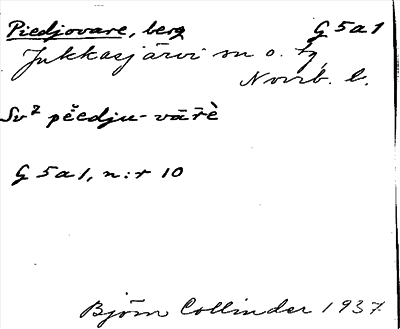 Piedjovare, berg G5a1
Jukkasjärvi sn o. tg
Norrb. l.
Sv² pĕedju-vār̄è
G5a1, n:r 10
Björn Collinder 1937.